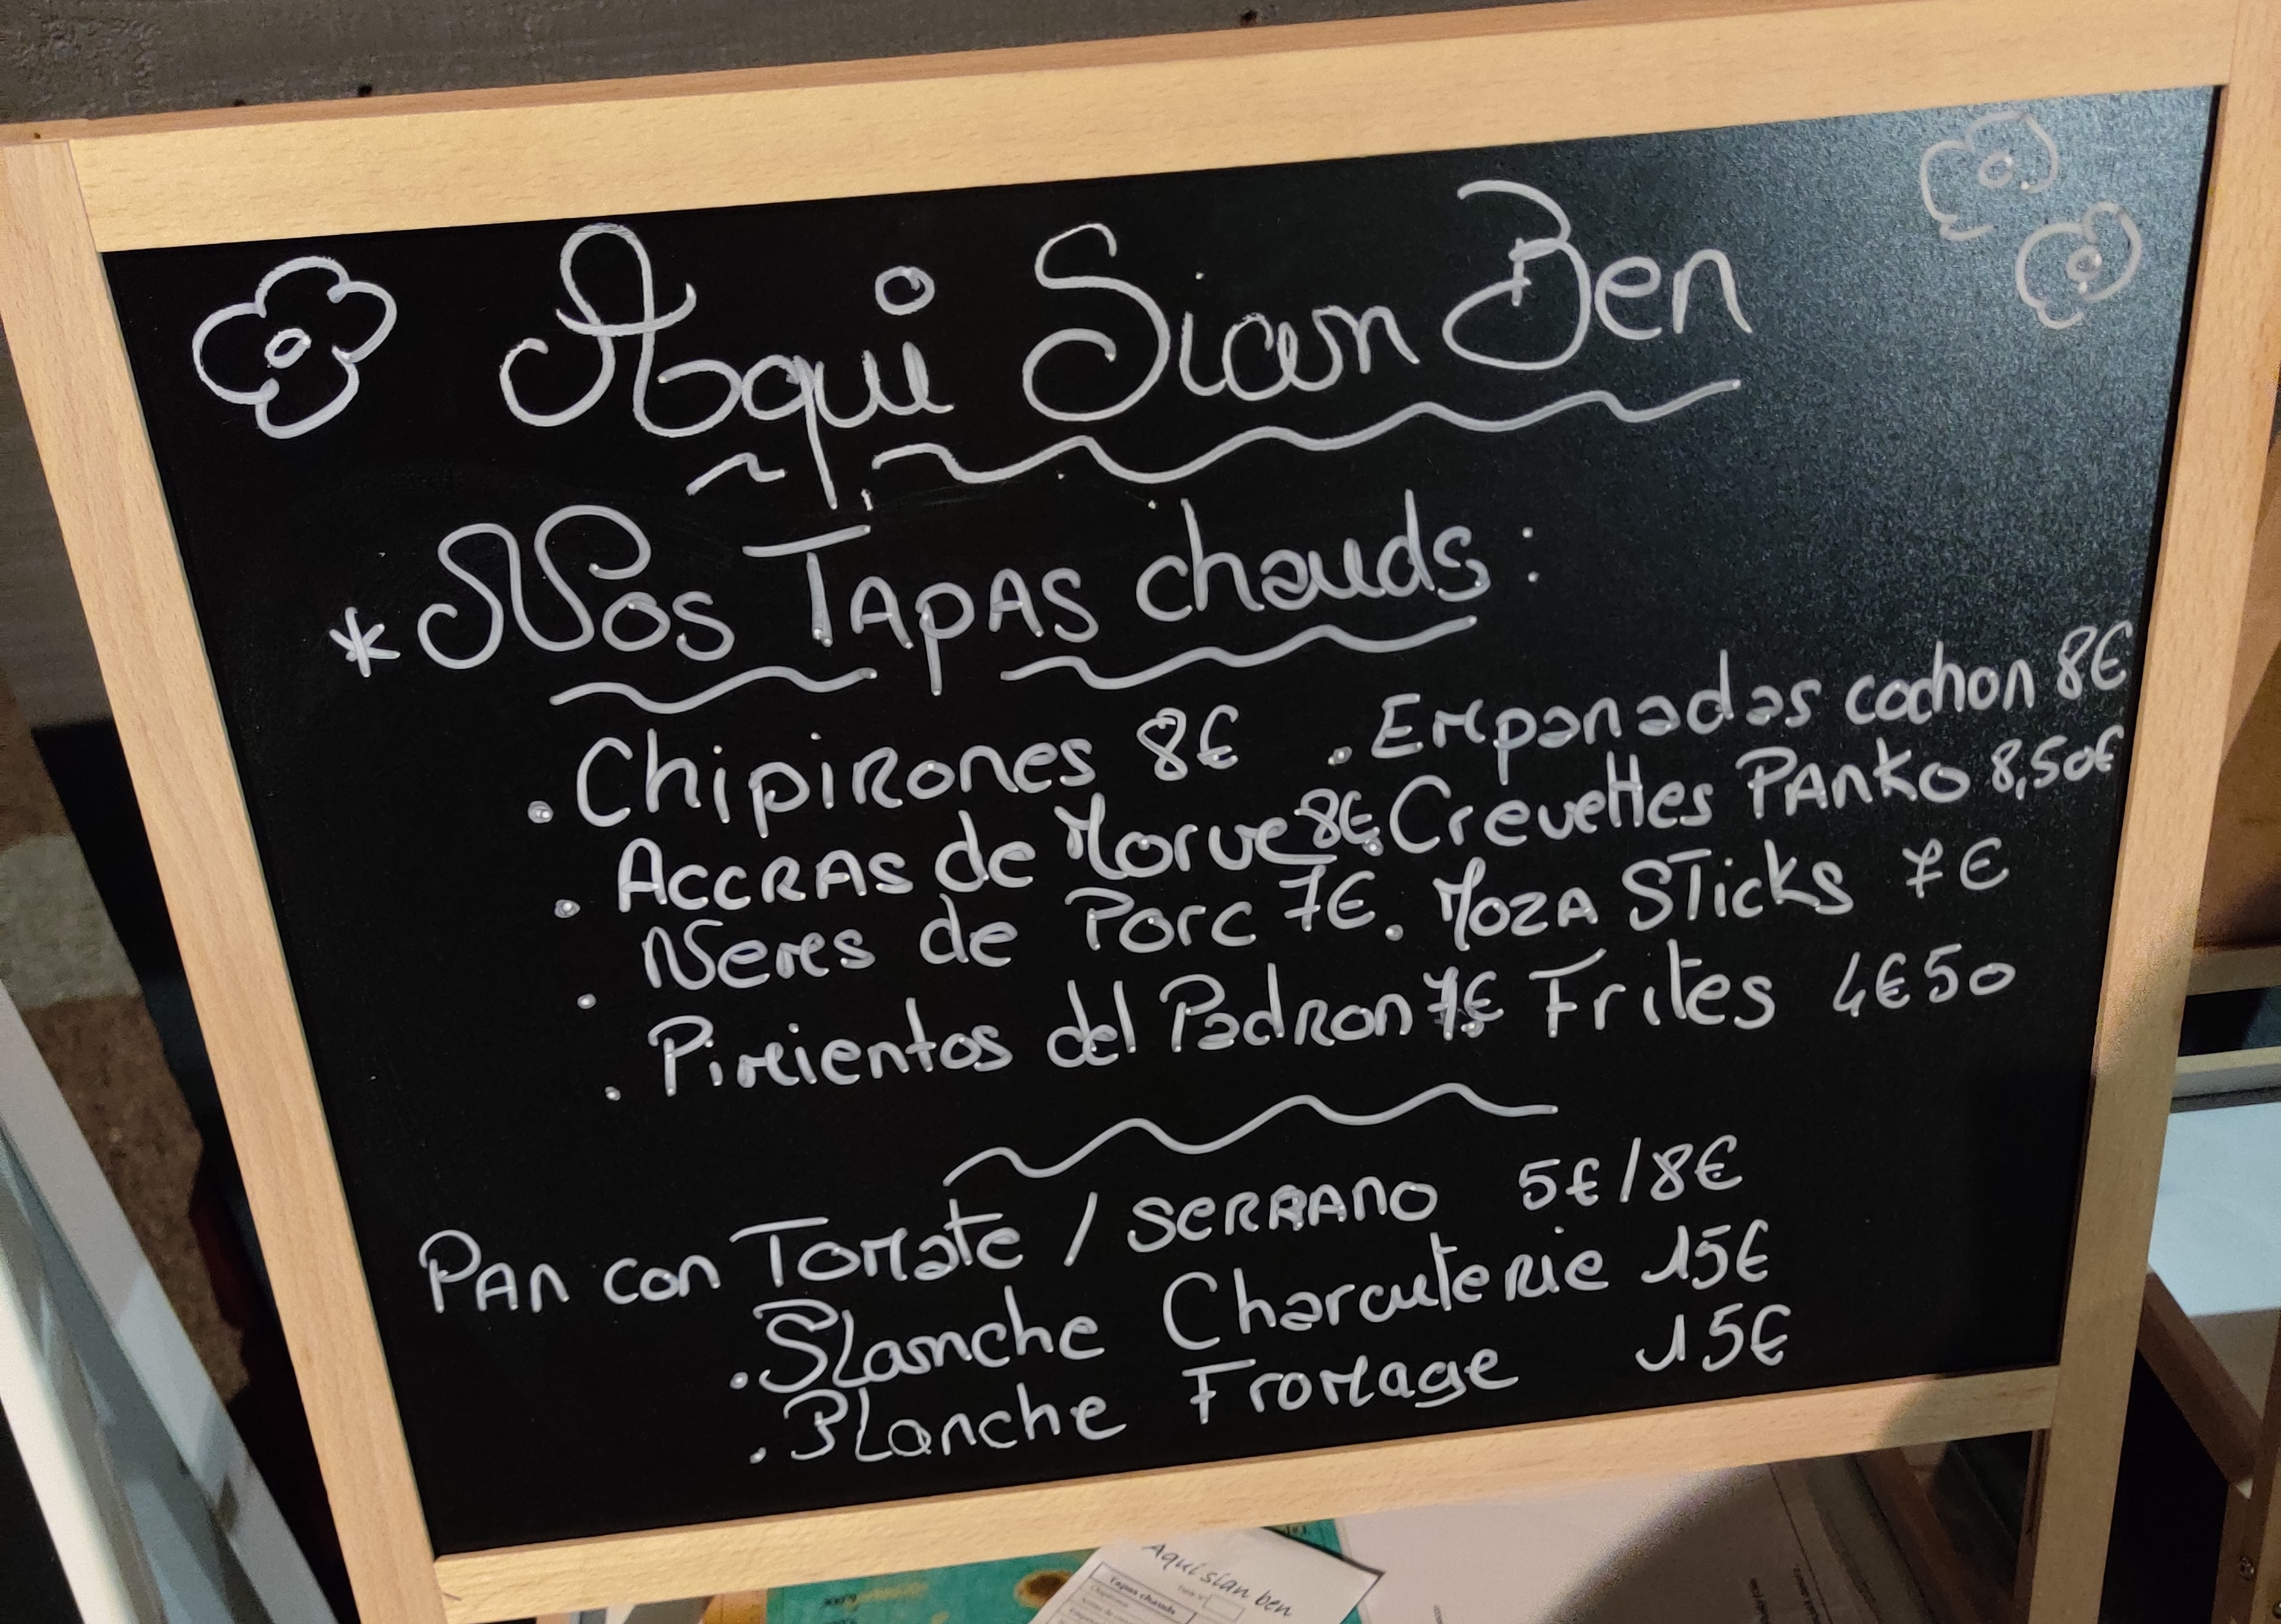 Aqui Sian Ben
* Nos Tapas chauds :
. Chipirones 8€ . Empanadas cochon 8€
. Accras de Morue 8€ . Crevettes Panko 8,50€
. Nems de Porc 7€ . Moza Sticks 7€
. Pimientos del Padron 7€ . Frites 4€50
Pan con Tomate / Serrano 5€/8€
. Planche Charcuterie 15€
. Planche Fromage 15€
Aqui sian ben
Tapas chauds